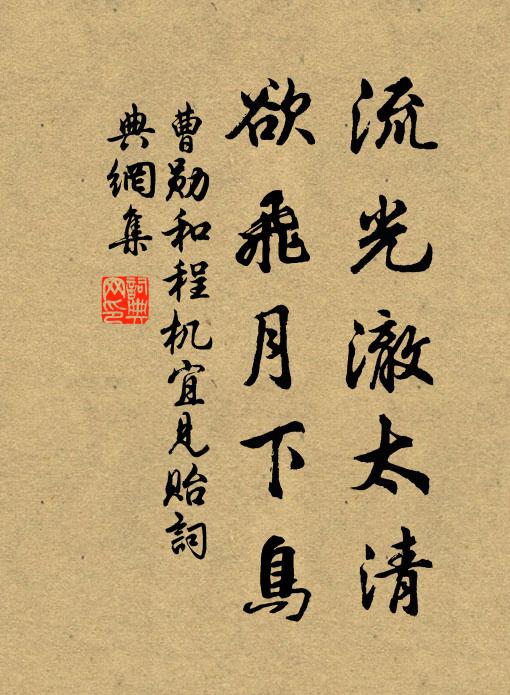 流光澈太清
欲飛月下鳥
曹勛和程机宜見貽詞
典網集
詞典網印